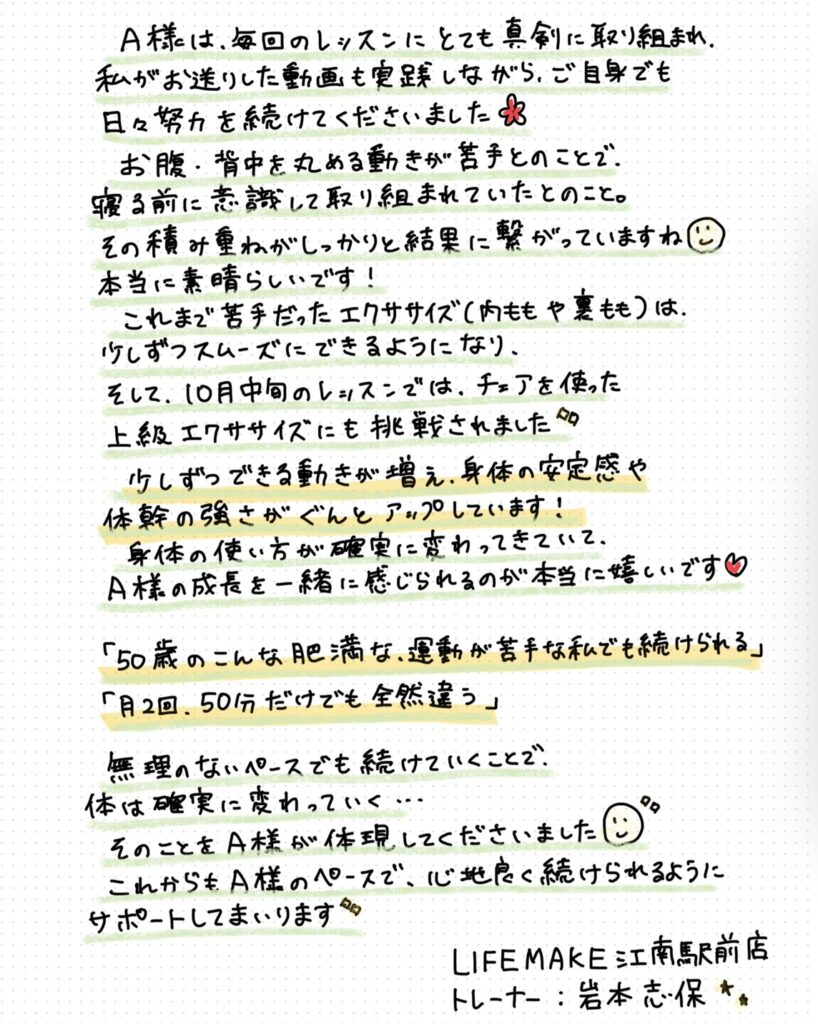 A様は、毎回のレッスンにとても真剣に取り組まれ、
私がお送りした動画も実践しながら、ご自身でも
日々努力を続けてくださいました
お腹・背中を丸める動きが苦手とのことで、
寝る前に意識して取り組まれていたとのこと。
その積み重ねがしっかりと結果に繋がっていますね
本当に素晴らしいです！
これまで苦手だったエクササイズ(内ももや裏もも)は、
少しずつスムーズにできるようになり、
そして、10月中旬のレッスンでは、チェアを使った
上級エクササイズにも挑戦されました
少しずつできる動きが増え、身体の安定感や
体幹の強さがぐんとアップしています！
身体の使い方が確実に変わってきていて、
A様の成長を一緒に感じられるのが本当に嬉しいです
「50歳のこんな肥満な、運動が苦手な私でも続けられる」
「月2回、50分だけでも全然違う」
無理のないペースでも続けていくことで、
体は確実に変わっていく…
そのことをA様が体現してくださいました
これからもA様のペースで、心地良く続けられるように
サポートしてまいります
LIFEMAKE江南駅前店
トレーナー：岩本志保